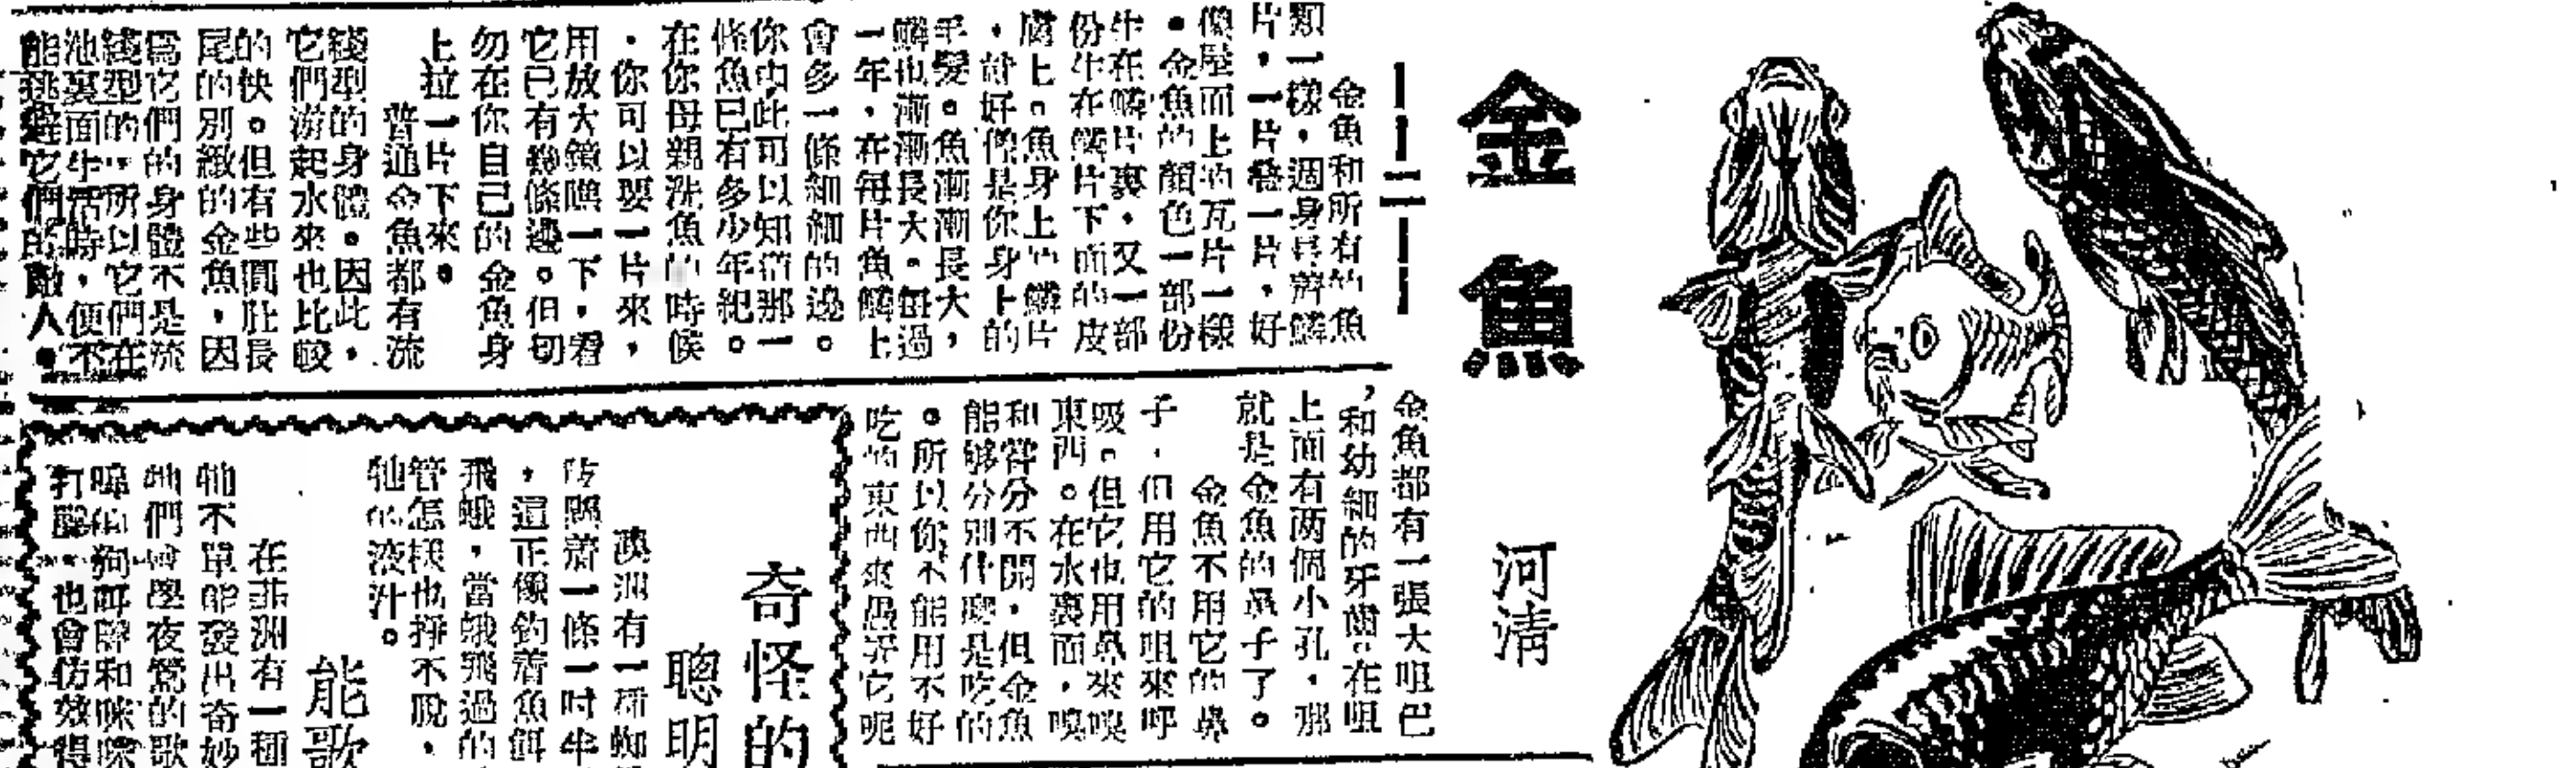 金魚
—二—
河清
金魚和所有的魚
類一樣，週身是齊鱗
片，一片叠一片，好
像屋面上的瓦片一樣
。金魚的顏色一部份
生在鱗片裏，又一部
份生在鱗片下面的皮
膚上。魚身上的鱗片
，就好像是你身上的
毛髮。魚漸漸長大，
鱗也漸漸長大。每過
一年，在每片魚鱗上
會多一條細細的邊。
你由此可以知道那一
條魚已有多少年紀。
在你母親洗魚的時候
，你可以要一片來，
用放大鏡瞧一下，看
它已有幾條邊。但切
勿在你自己的金魚身
上拉一片下來。
普通金魚都有流
綫型的身體。因此，
它們游起水來也比較
的快。但有些圓肚長
尾的別緻的金魚，因
爲它們的身體不是流
綫型的，所以它們在
池裏面生活時，便不
能逃避它們的敵人。
金魚都有一張大咀巴
，和幼細的牙齒。在咀
上面有兩個小孔，那
就是金魚的鼻子了。
金魚不用它的鼻
子，但用它的咀來呼
吸。但它也用鼻來嗅
東西。在水裏面，嗅
和嘗分不開，但金魚
能够分別什麽是吃的
。所以你不能用不好
吃的東西來愚弄它呢
奇怪的
聰明
澳洲有一種蜘
肢懸着一條一吋半
，這正像釣着魚餌
飛蛾，當蛾飛過的
管怎樣也掙不脫，
牠的液汁。
能歌
在菲洲有一種
牠不單能發出奇妙
牠們會學夜鶯的歌
嘷的狗吠聲和咪咪
打聽，也會仿效得